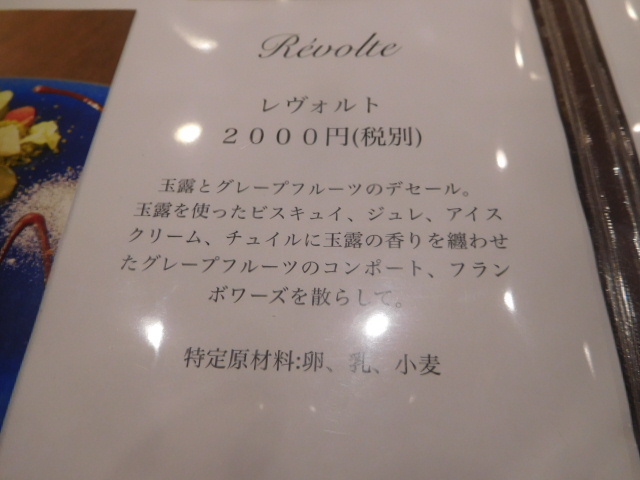 Révolte
レヴォルト
２０００円(税別)
玉露とグレープフルーツのデセール。
玉露を使ったビスキュイ、ジュレ、アイス
クリーム、チュイルに玉露の香りを纏わせ
たグレープフルーツのコンポート、フラン
ボワーズを散らして。
特定原材料:卵、乳、小麦